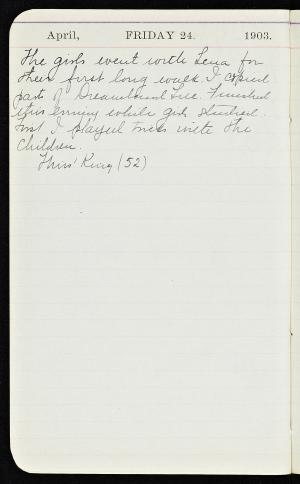 April, FRIDAY 24. 1903.
The girls went with Lena for
their first long walk. I copied
part of Dreamland Tree. Finished
it this evening while girls studied.
first I played trios with the
children.
King (52)